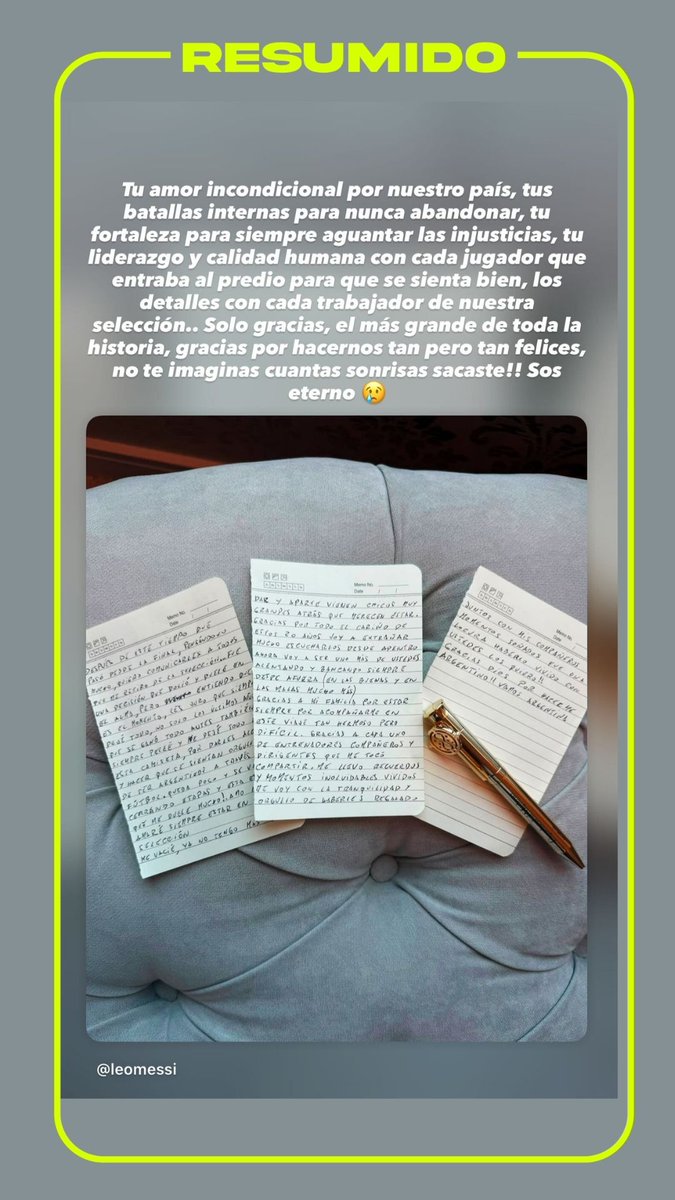 RESUMIDO
Tu amor incondicional por nuestro país, tus
batallas internas para nunca abandonar, tu
fortaleza para siempre aguantar las injusticias, tu
liderazgo y calidad humana con cada jugador que
entraba al predio para que se sienta bien, los
detalles con cada trabajador de nuestra
selección.. Solo gracias, el más grande de toda la
historia, gracias por hacernos tan pero tan felices,
no te imaginas cuantas sonrisas sacaste!! Sos
eterno 😢
Memo No.
Date / /
DESPUÉS DE ESTE TIEMPO QUE
PASÓ DESDE LA FINAL, PENSÁNDOLO
MUCHO, QUERÍA COMUNICARLES A TODOS
QUE ME RETIRO DE LA SELECCIÓN. FUE
UNA DECISIÓN QUE DOLIÓ Y DUELE
DE ALMA, PERO ENTIENDO QUE
ES EL MOMENTO, LES JURO QUE
DEJÉ TODO, NO SOLO LOS ÚLTIMOS
QUE SE GANÓ TODO ANTES TAMBIÉN
SIEMPRE PELEÉ Y ME DEJÉ TODO
ESTA CAMISETA, POR DARLES
Y HACER QUE SE SIENTAN
DE SER ARGENTINOS A TRAVÉS
FÚTBOL. QUEDA POCO Y SE
CERRANDO ETAPAS Y ESTA
QUE ME DUELE MUCHO, AMO
AMARÉ SIEMPRE ESTAR EN
SELECCIÓN
ME VACIÉ, YA NO TENGO
Memo No.
Date / /
DAR Y APARTE VIENEN CHICOS MUY
GRANDES ATRÁS QUE MERECEN ESTAR.
GRACIAS POR TODO EL CARIÑO DE
ESTOS 20 AÑOS VOY A EXTRAÑAR
MUCHO ESCUCHARLOS DESDE ADENTRO
AHORA VOY A SER UNO MÁS DE USTEDES
ALENTANDO Y BANCANDO SIEMPRE
DESDE AFUERA (EN LAS BUENAS Y EN
LAS MALAS MUCHO MÁS)
GRACIAS A MI FAMILIA POR ESTAR
SIEMPRE POR ACOMPAÑARME EN
ESTE VIAJE TAN HERMOSO PERO
DIFÍCIL. GRACIAS A CADA UNO
DE ENTRENADORES COMPAÑEROS Y
DIRIGENTES QUE ME TOCÓ
COMPARTIR. ME LLEVO RECUERDOS
Y MOMENTOS INOLVIDABLES VIVIDOS
ME VOY CON LA TRANQUILIDAD Y
ORGULLO DE HABERLES REGALADO,
Memo No.
Date
JUNTOS CON MIS COMPAÑEROS
MOMENTOS SOÑADOS FUE UNA
LOCURA HABERLO VIVIDO CON
USTEDES LOS QUIERO!!
GRACIAS DIOS POR HACERME
ARGENTINO!! VAMOS ARGENTINA
@leomessi